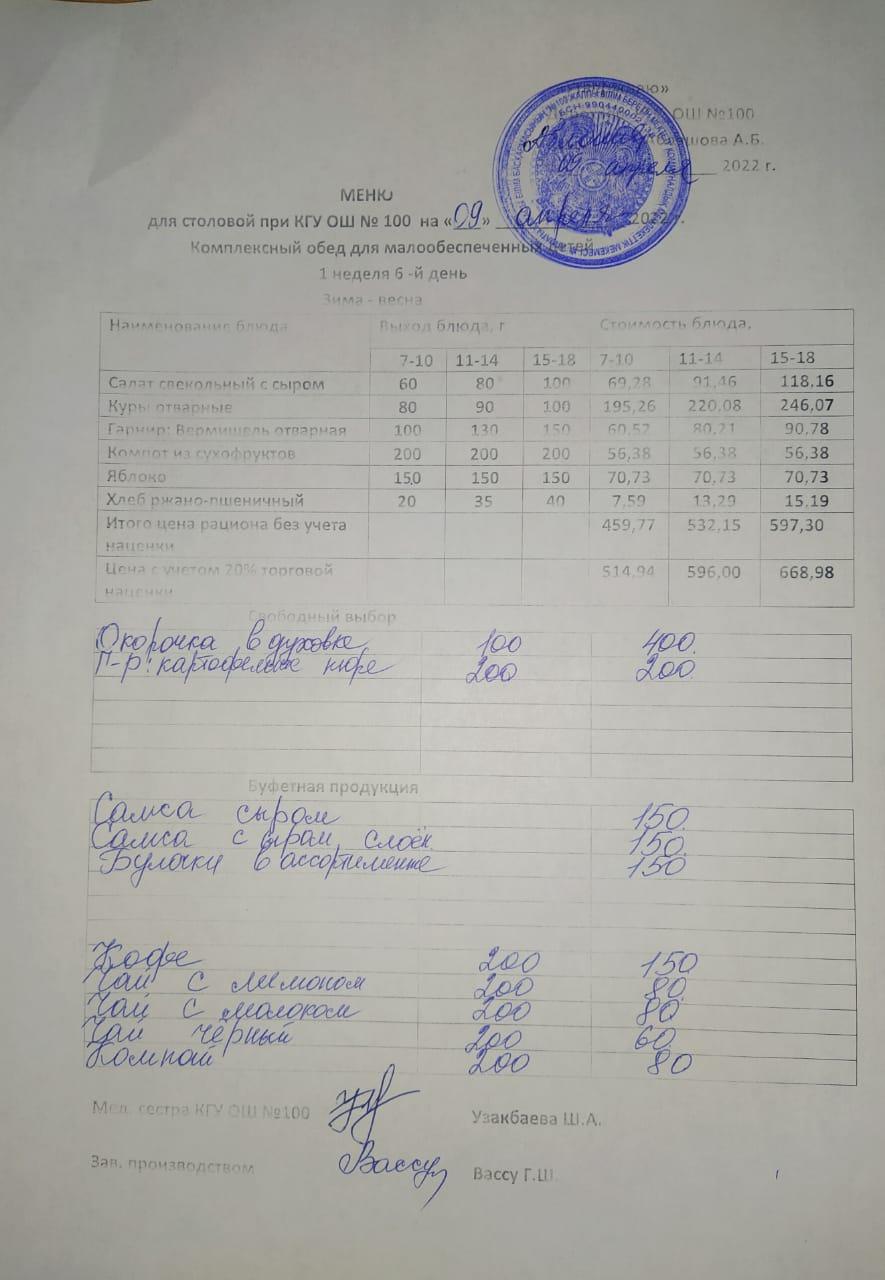 ОШ №100
А.Б.
09 апреля 2022 г.
МЕНЮ
для столовой при КГУ ОШ № 100 на «09» апреля 2022 г.
Комплексный обед для малообеспеченных детей
1 неделя 6 -й день
Зима - весна
Наименование блюда Выход блюда, г Стоимость блюда,
7-10 11-14 15-18 7-10 11-14 15-18
Салат свекольный с сыром 60 80 100 69,28 91,46 118,16
Куры отварные 80 90 100 195,26 220,08 246,07
Гарнир: Вермишель отварная 100 130 150 60,52 80,21 90,78
Компот из сухофруктов 200 200 200 56,38 56,38 56,38
Яблоко 150 150 150 70,73 70,73 70,73
Хлеб ржано-пшеничный 20 35 40 7,59 13,29 15,19
Итого цена рациона без учета 459,77 532,15 597,30
наценки
Цена с учетом 20% торговой 514,94 596,00 668,98
наценки
Свободный выбор
Окорочка в духовке 100 400
Г-р: картофельное пюре 200 200
Буфетная продукция
Самса сыром 150
Самса с сыром, слоён. 150
Булочки в ассортименте 150
Кофе 200 150
Чай с лимоном 200 80
Чай с молоком 200 80
Чай чёрный 200 60
Компот 200 80
Мед. сестра КГУ ОШ №100 Узакбаева Ш.А.
Зав. производством Вассу Вассу Г.Ш.